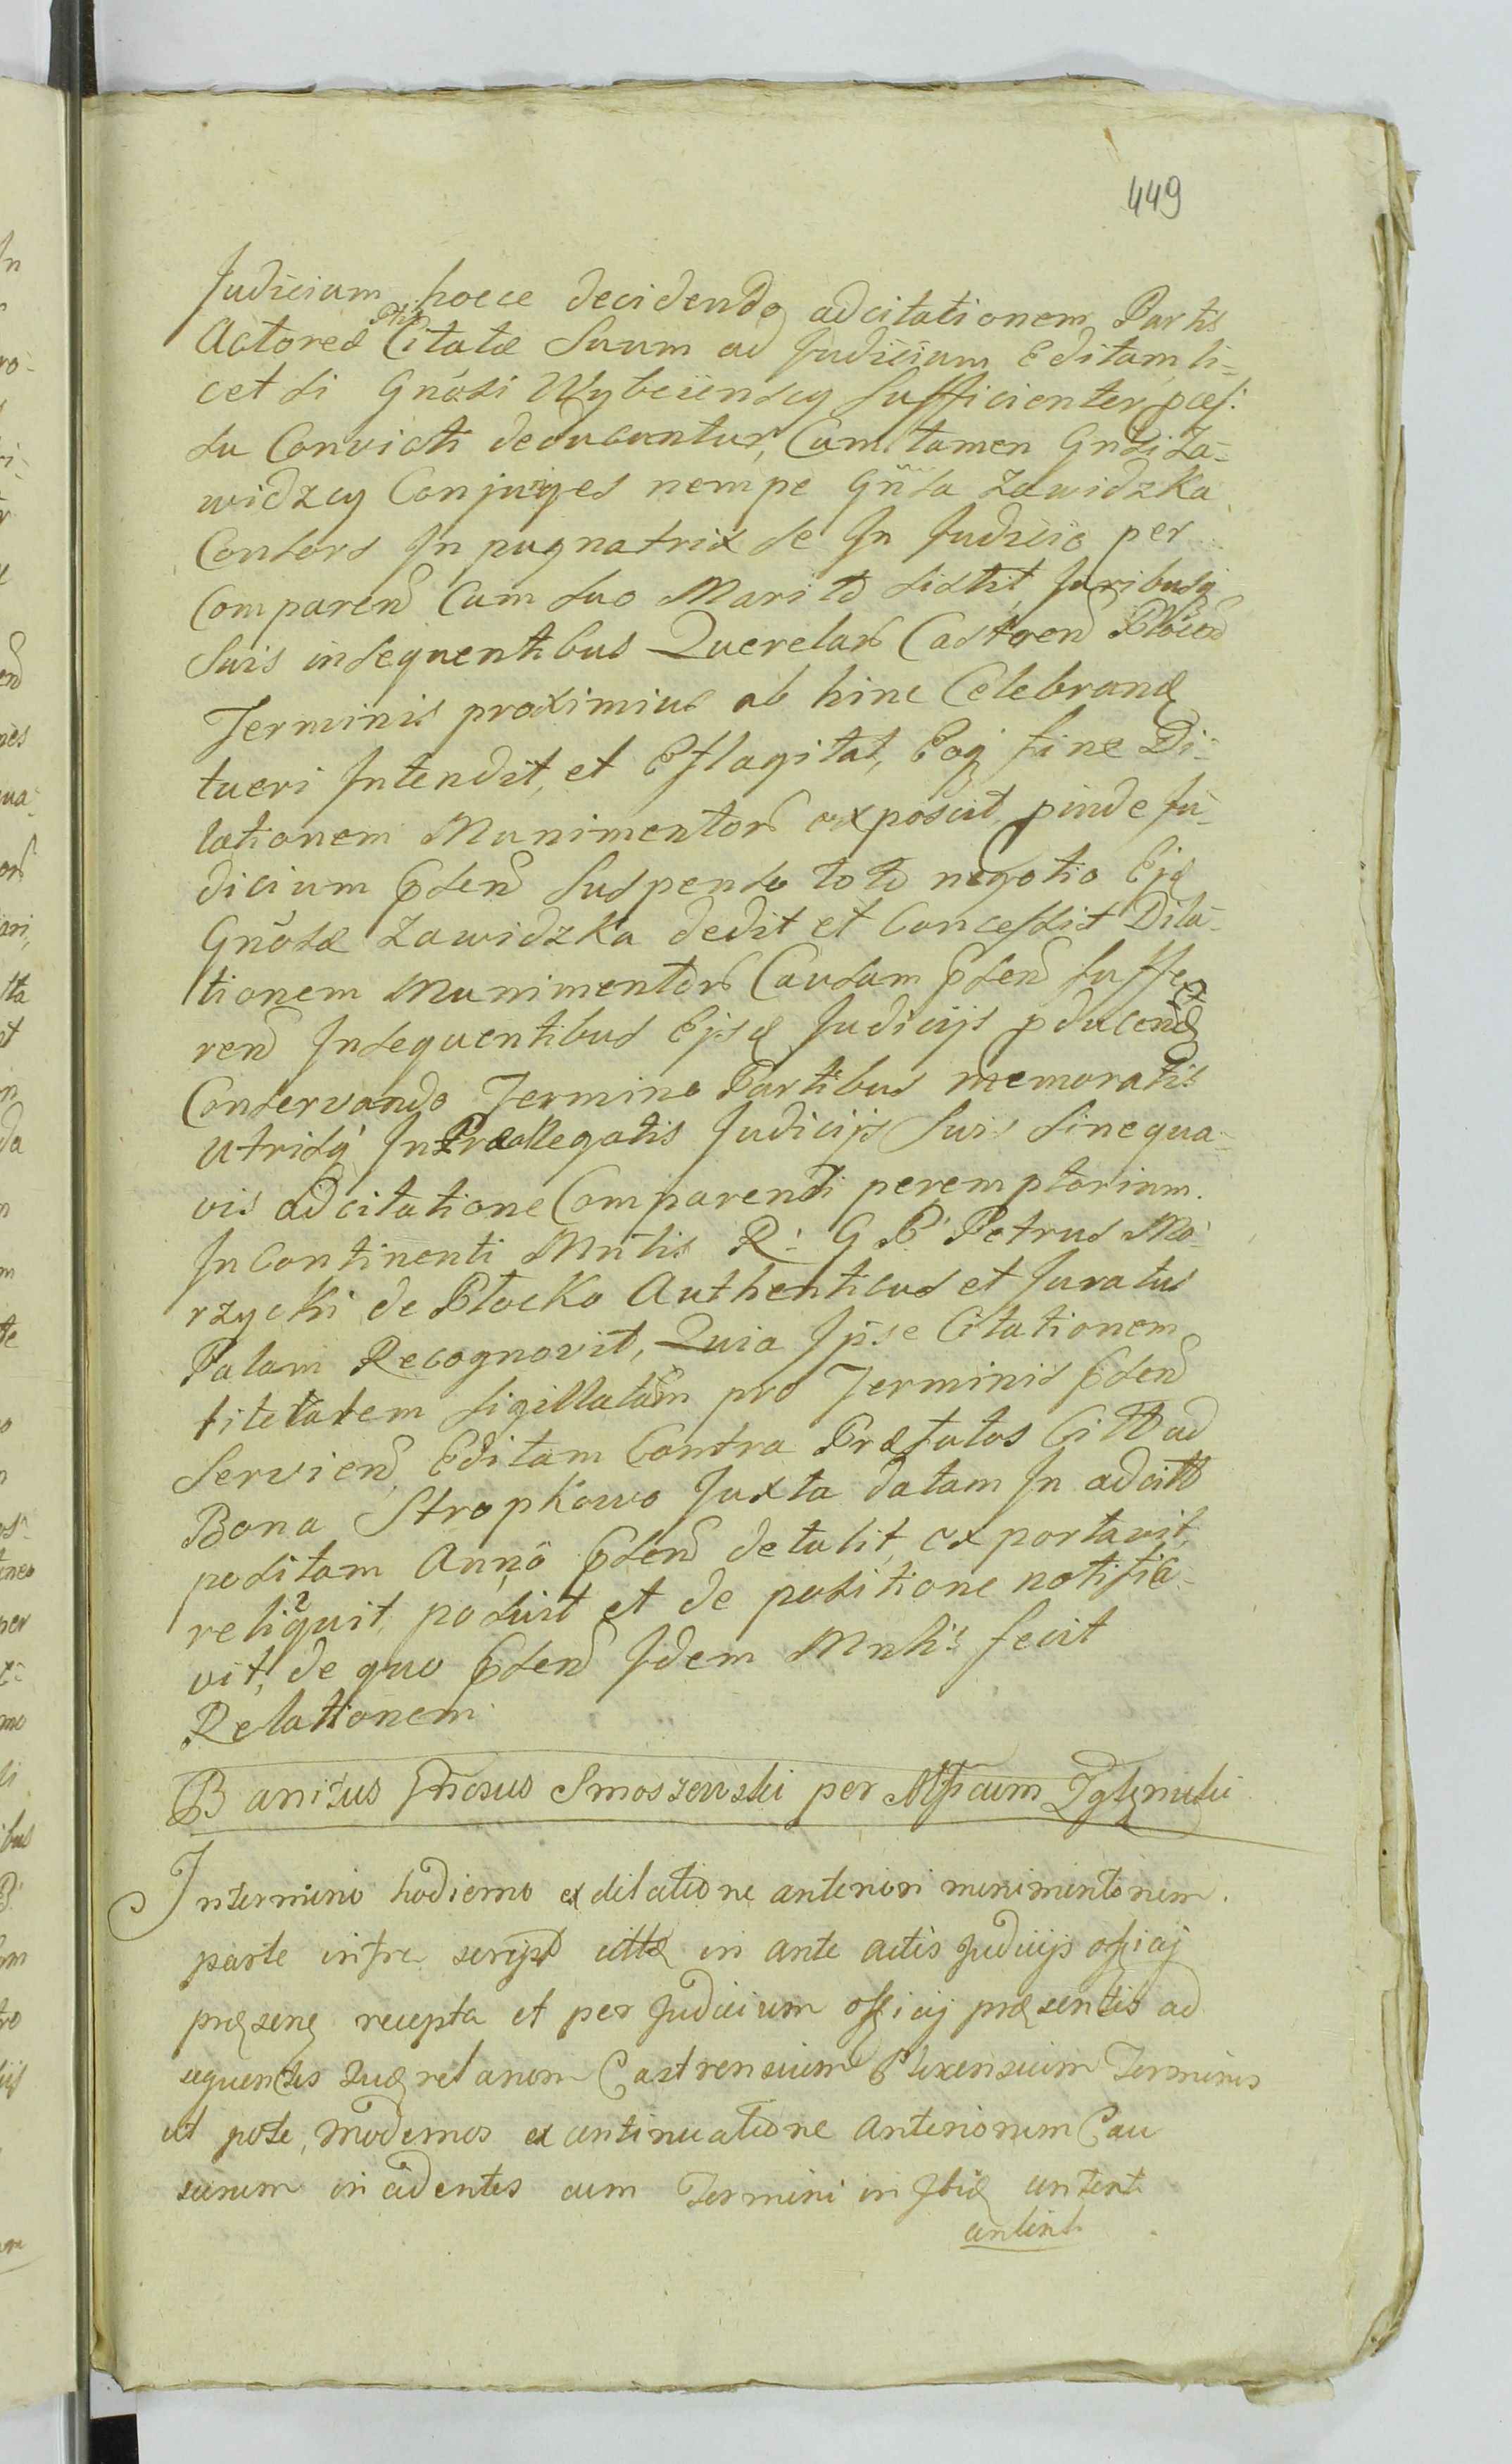 449
Judicium hocce decidendo adcitationem Partis
Actores Ptis Citatæ Suum ad Judicium Editam li=
cet si Gnosi Wybcinscy Sufficienter
su Convicti deducuntur, Cum tamen Gnsi Za=
widzcy Conjuges nempe Gnsa Zawidzka
Consors Inpugnatrix se In Judicio per
Comparend Cum suo Marito sistit, Juribusq
Suis insequentibus Querelar Castren Plocen
Terminis proximius ab hinc Celebrand
tueri Intendit, et Efflagitat, Eoq fine Di=
lationem Munimentor exposcit, pinde Ju=
dicium Psens Suspenso toto negotio Ejq
Gnosæ Zawidzka dedit et Concessit Dila=
tionem Munimentor Causam Psen suffe
ren Insequentibus Ejsd Judicijs pducend
Conservando Termino Partibus memoratis
utrisq In Præallegatis Judicijs Suis sine qua=
vis adcitatione Comparendi peremptorium.
In Continenti Mnlis R: G P Petrus Mo=
rzycki de Plocko Authenticus et Juratus
Palam Recognovit, Quia Ipse Citationem
litetatem sigillatam pro Terminis Psen
Servien, Editam Contra Præfatos Citt ad
Bona Stropkowo Juxta datam In adcitt
positam Anno Psen detulit, exportavit,
reliquit, posuit et de positione notifica=
vit, de quo Psen Idem Mnlis fecit
Relationem
Banitus Gnosus Smoszewski per Mfcum Zglinicki
In termino hodierno ex dilatione anteriori munimentorum
parte infra script citta in ante actis Judicijs officij
præsens recepta et per Judicium officij præsentis ad
sequentes Quærelarum Castrensium Plocensium Terminos
ut pote, modernos ex continuatione anteriorum Cau
sarum incidentes cum Termini in content